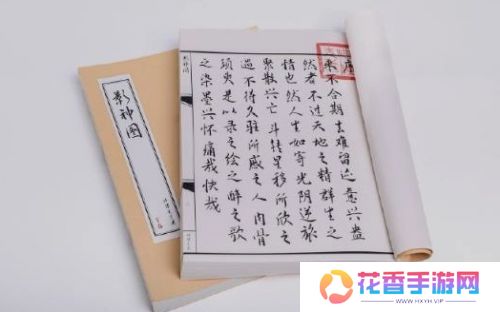 序
来不合期去难留迹意兴盎
然者不过天地之精群生之
情也然人生如寄光阴逆旅
聚散兴亡斗转星移所欣之
遇不待久驻所感之人肉骨
顷夷是以录之绘之醉之歌
之染墨兴怀痛哉快哉
影神图
影神图
花香手游网
WWW.HXYH.VIP